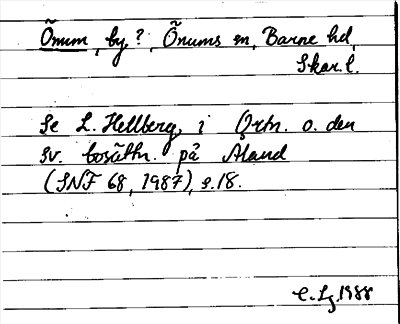 Õnum, by?, Õnums sn, Barne hd,
Skar. l.
Se L. Hellberg, i Ortn. o. den
sv. bosättn. på Åland
(SNF 68, 1987), s. 18.
1988